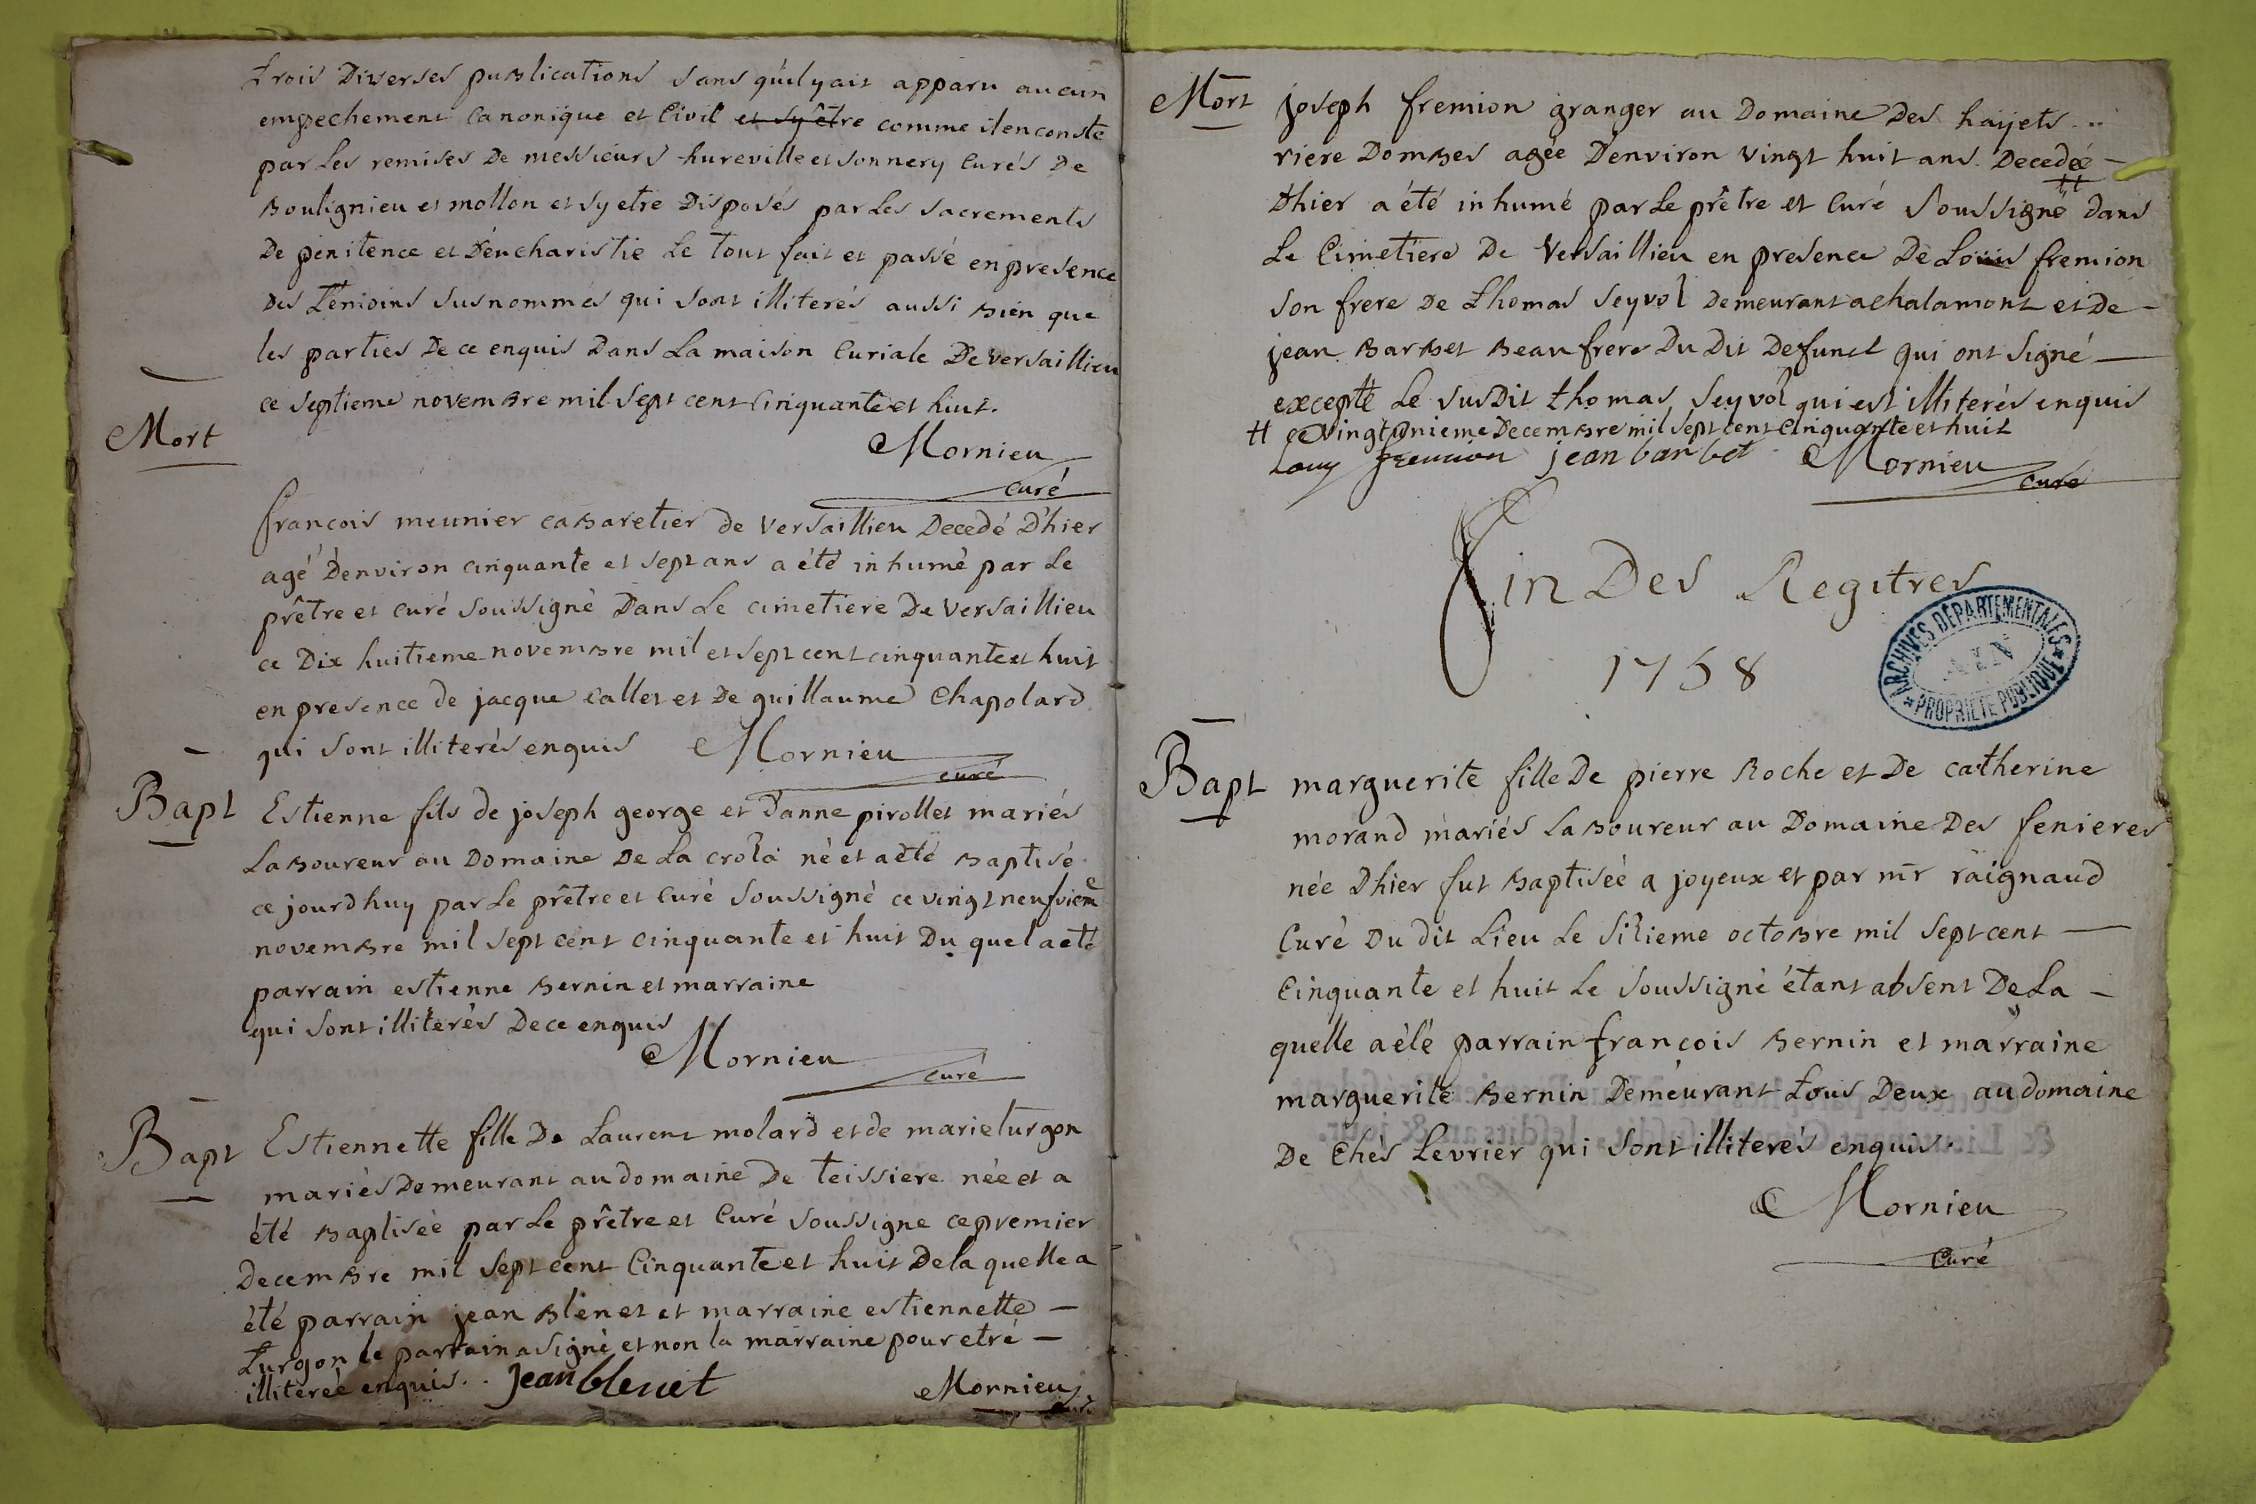 trois Diverses publications sans qu'il y ait apparu aucun
empechement Canonique et Civil et syêtre comme il en conste
par Les remises De messieurs hureville et sonnery Curés De
Boulignieu et mollon et sy etre Disposés par Les sacrements
De penitence et D'eucharistie Le tout fait et passé en presence
Des Témoins susnommés qui sont illiterés aussi Bien que
les parties De ce enquis Dans La maison Curiale De versaillieu
ce septieme novembre mil sept cent Cinquante et huit.
Mornieu
curé
Mort
francois meunier cabaretier de versaillieu Decedé D'hier
agé D'environ cinquante et sept ans a été inhumé par Le
prêtre et curé soussigné Dans Le cimetiere De versaillieu
ce Dix huitieme novembre mil et sept cent cinquante et huit
en presence de jacque callet et De guillaume Chapolard
qui sont illiterés enquis Mornieu
curé
Bapt Estienne fils de joseph george et d'anne pirollet mariés
Laboureur au Domaine De La crola né et a été Baptisé
ce jourdhuy par Le prêtre et Curé soussigné ce vingt neufvieme
novembre mil sept cent cinquante et huit Du quel a eté
parrain estienne Bernin et marraine
qui sont illiterés De ce enquis
Mornieu
curé
Bapt Estiennette fille De Laurent molard et de marie turgon
mariés Demeurant au domaine De teissiere née et a
été Baptisée par Le prêtre et Curé soussigne ce premier
Decembre mil sept cent Cinquante et huit De la quelle a
été parrain jean Blenet et marraine estiennette —
Turgon le parrain a signé et non la marraine pour etré —
illiterée enquis. . jean blenet Mornieu
curé
Mort joseph fremion granger au Domaine Des hayets ..
riere Dombes agée D'environ vingt huit ans. Decedeé —
Dhier a été inhumé par Le prêtre et Curé soussigné tt dans
Le Cimetiere De versaillieu en presence De Louis fremion
son frere De Thomas seyvol Demeurant a chalamont et De —
jean Barbet Beau frere Du Dit Defunct qui ont signé —
excepté Le susdit thomas seyvol qui est illiterés enquis
tt ce vingt unieme Decembre mil sept cent Cinquante et huit
Louy fremion jean barbet Mornieu
curé
Fin Des Regitres
1758
ARCHIVES DÉPARTEMENTALES
AIN
PROPRIÉTÉ PUBLIQUE
Bapt marguerite fille De pierre Roche et De catherine
morand mariés Laboureur au Domaine Des fenieres
née Dhier fut Baptisée a joyeux et par mr raignaud
Curé Du dit Lieu Le sixieme octobre mil sept cent —
Cinquante et huit Le soussigné étant absent De La —
quelle a été parrain francois Bernin et marraine
marguerite Bernin Demeurant tous Deux au domaine
De Chés Levrier qui sont illiterés enquis.
Mornieu
Curé